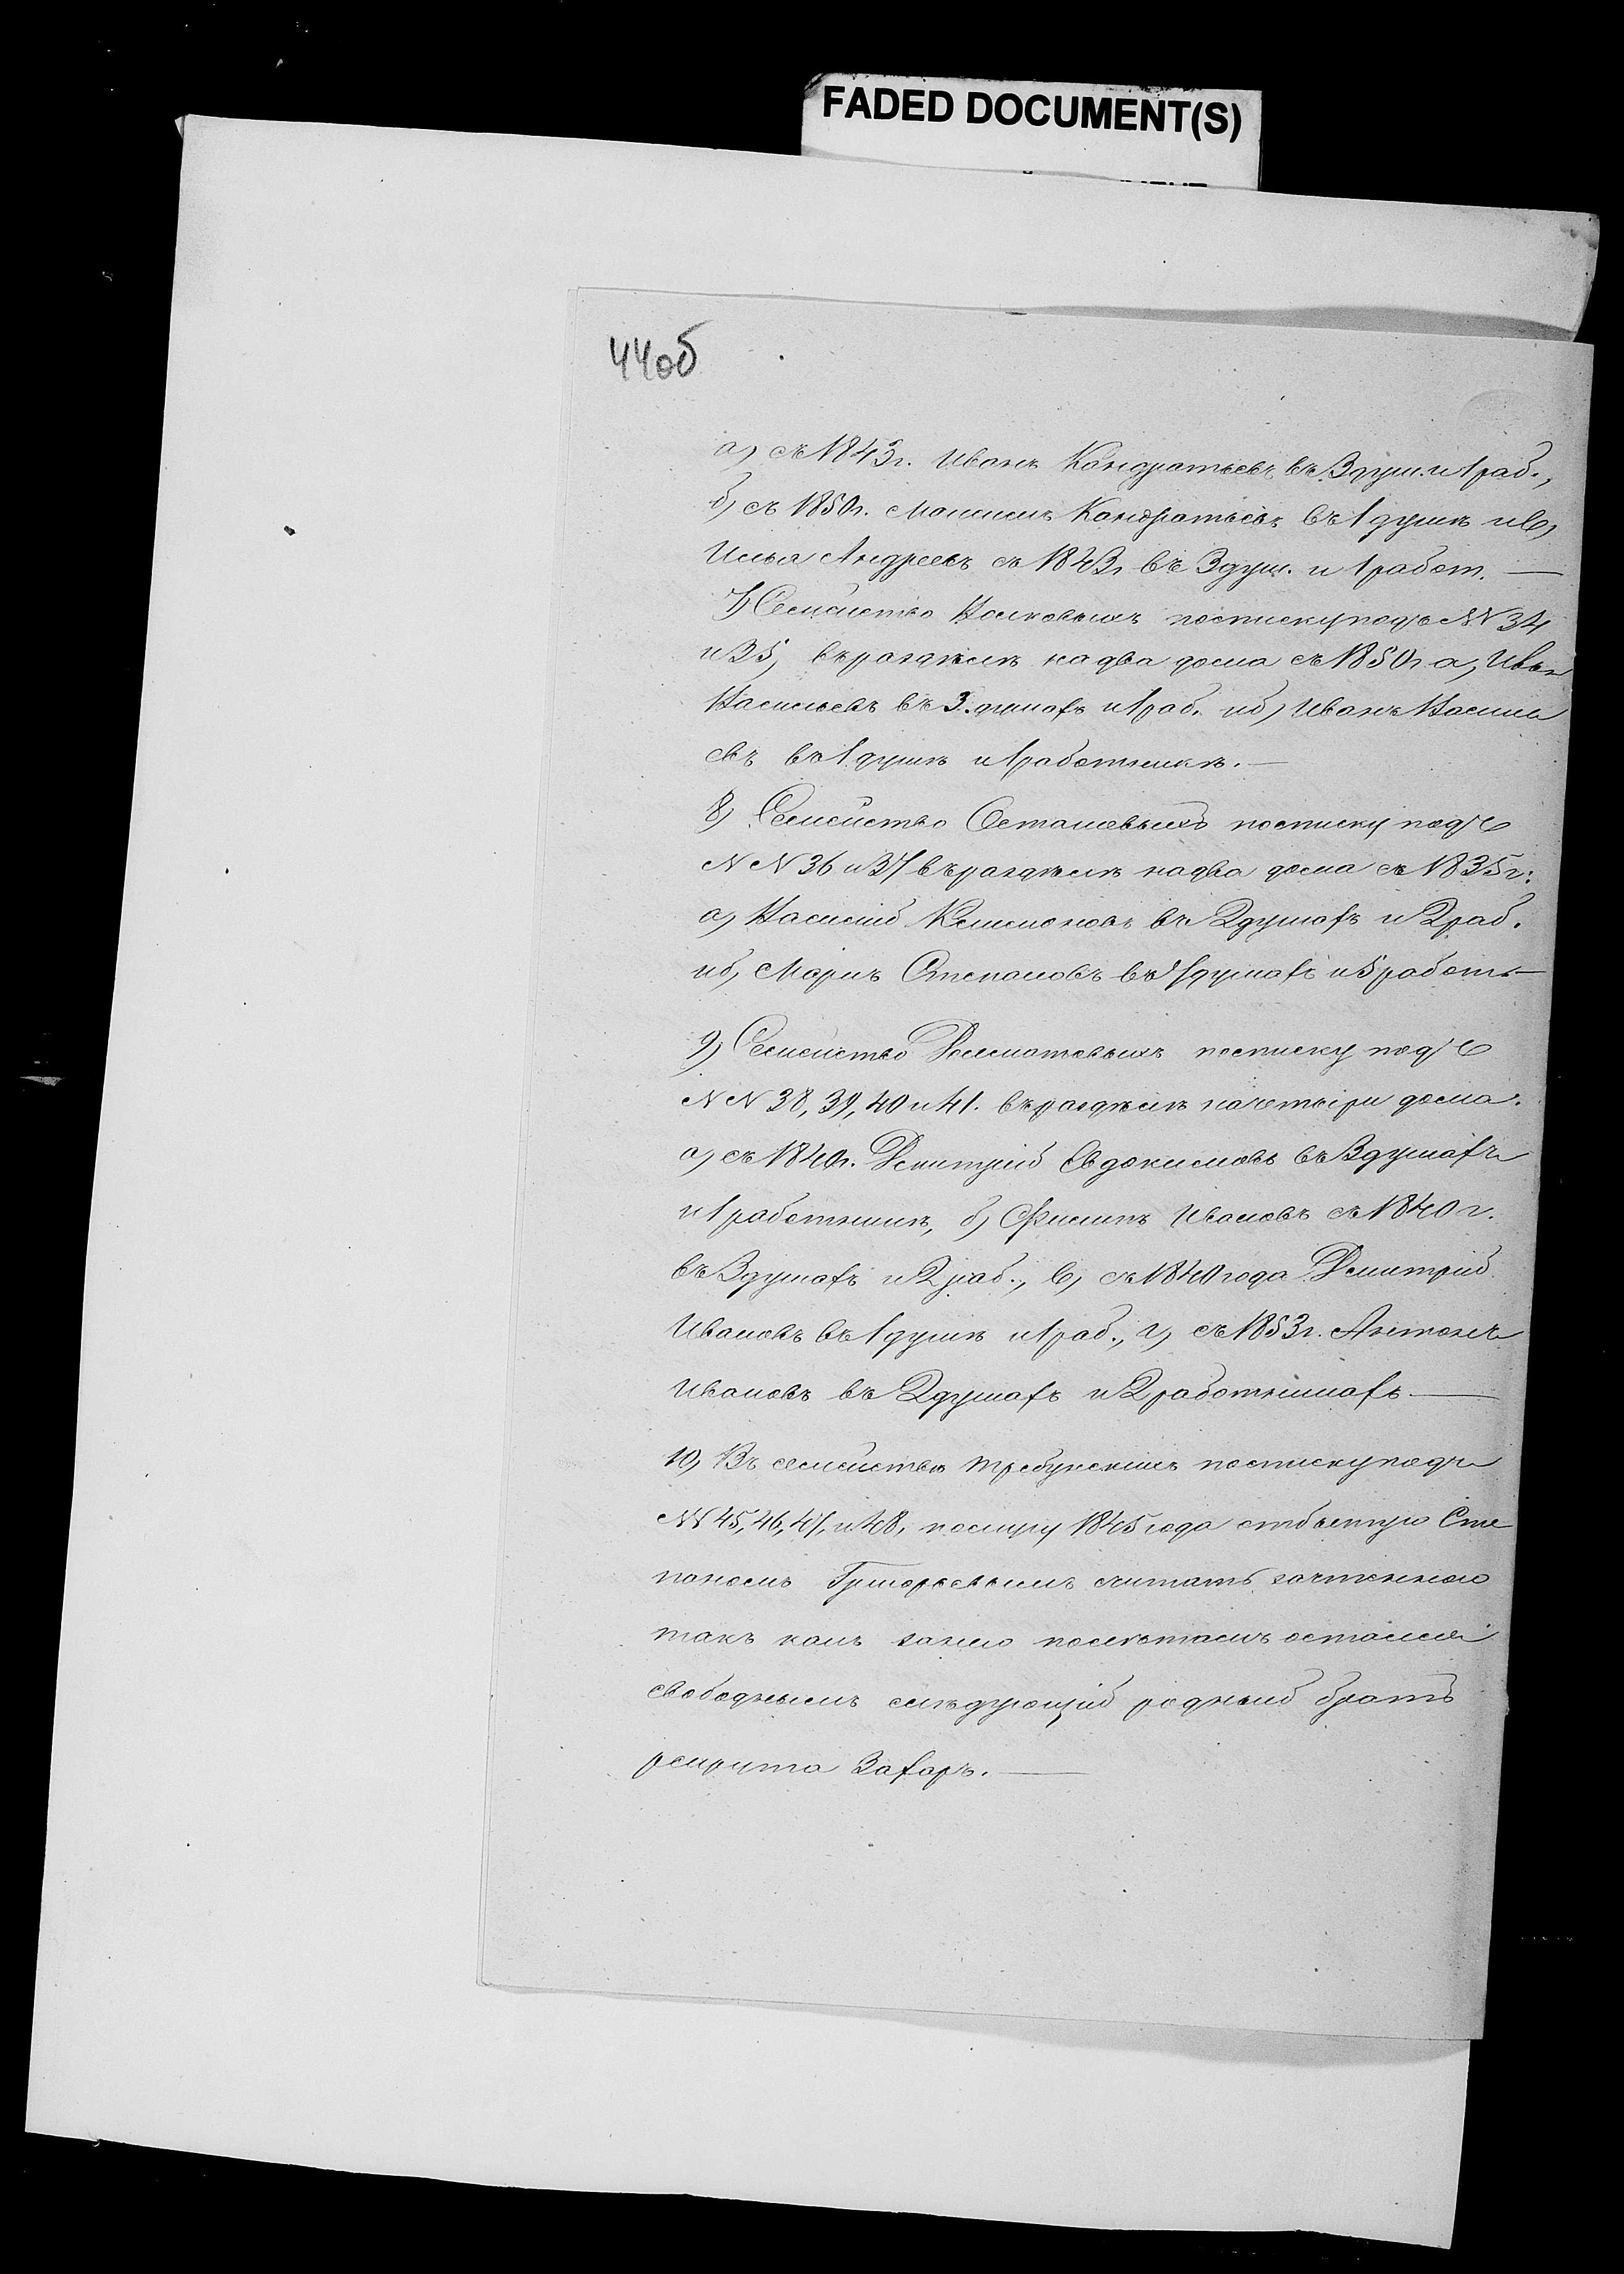 FADED DOCUMENT(S)
44об
а) съ 1843г. Иванъ Кондратьевъ въ 3 душ. и 1 раб.,
б) съ 1850г. Максимъ Кондратьевъ въ 1 душѣ и в)
Илья Андреевъ съ 1843г. въ 3 душ. и 1 работ. —
7) Семейство по списку подъ NN 34
и 35, въ раздѣлѣ на два дома съ 1850г. а) Иванъ
Васильевъ въ 3 душахъ и 1 раб. и б) Иванъ Василь
евъ въ 1 душѣ и 1 работникѣ. —
8) Семейство по списку подъ
NN 36 и 37 въ раздѣлѣ на два дома съ 1835г:
а) Василій въ 2 душахъ и 2 раб.
и б) Степановъ въ душахъ и 5 работ. —
9) Семейство по списку подъ
NN 38, 39, 40 и 41. въ раздѣлѣ на четыри дома.
а) съ 1840г. Дмитрій Евдокимовъ въ 3 душахъ
и 1 работникѣ, б) Филипъ Ивановъ съ 1840 г.
въ 3 душахъ и 2 раб., в) съ 1840 года Дмитрій
Ивановъ въ 1 душѣ и 1 раб., г) съ 1853г. Антонъ
Ивановъ въ 2 душахъ и 2 работникахъ. —
10) Въ семействѣ по списку подъ
NN 45, 46, 47, и 48, 1845 года отбытую Сте
паномъ Григорьевымъ считать зачтенною
такъ какъ за нею остался
свободнымъ слѣдующій родный братъ
рекрута Захаръ. —